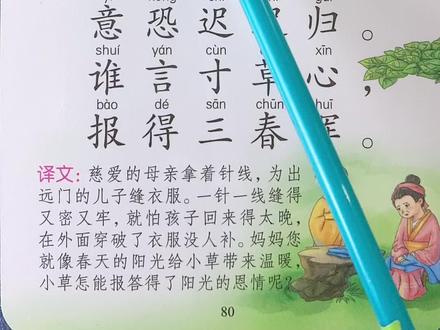 意恐迟归。
shuí yán cùn xīn
谁言寸草心，
bào dé sān chūn huī
报得三春晖。
译文：慈爱的母亲拿着针线，为出
远门的儿子缝衣服。一针一线缝得
又密又牢，就怕孩子回来得太晚，
在外面穿破了衣服没人补。妈妈您
就像春天的阳光给小草带来温暖，
小草怎能报答得了阳光的恩情呢？
80